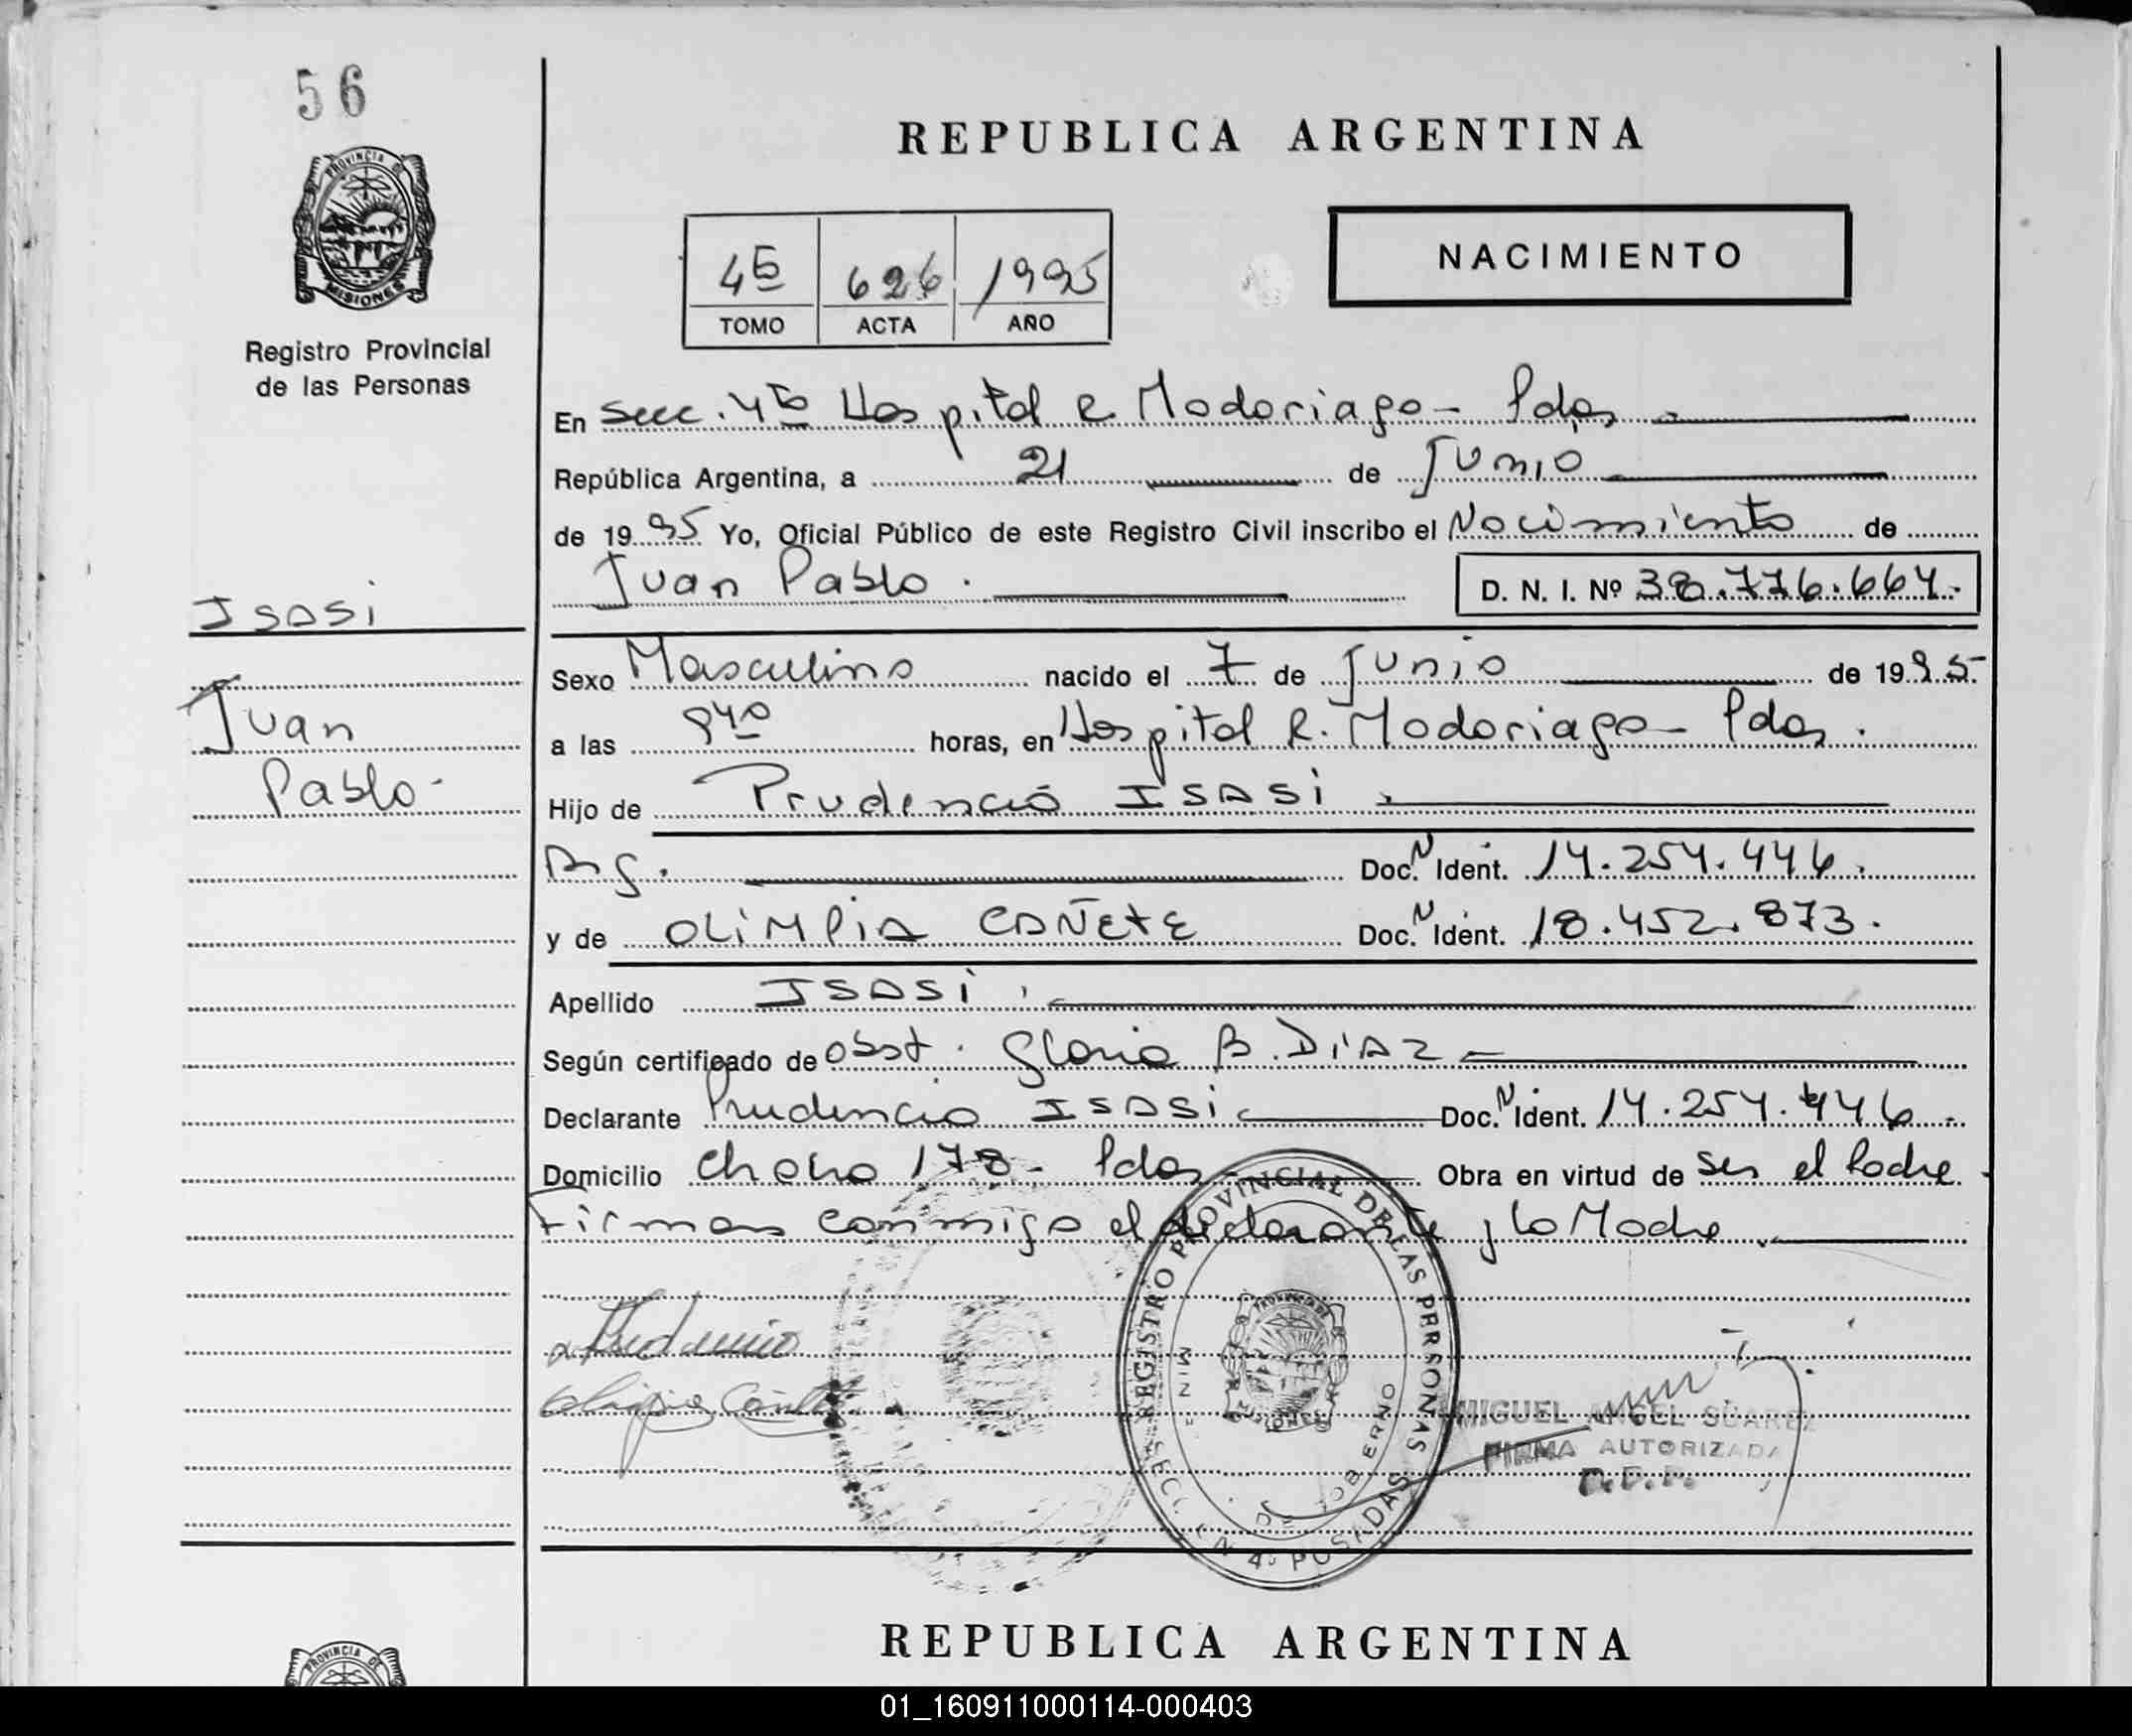 56
PROVINCIA DE
MISIONES
Registro Provincial
de las Personas
REPUBLICA ARGENTINA
4º 626 1995
TOMO ACTA AÑO
NACIMIENTO
En Secc. 4ta Hospital R. Madariaga - Pdas
República Argentina, a 21 de Junio
de 1995 Yo, Oficial Público de este Registro Civil inscribo el Nacimiento de
Juan Pablo. D. N. I. Nº 38.776.664.
Isasi
Juan
Pablo-
Sexo Masculino nacido el 7 de Junio de 1995
a las 9 40 horas, en Hospital R. Madariaga - Pdas.
Hijo de Prudencio ISASi
Arg. Doc. N Ident. 14.254.446.
y de OLiMPiA CAÑEtE Doc. N Ident. 18.452.873.
Apellido ISASi
Según certificado de obst. Gloria B. DiAZ
Declarante Prudencio ISASi Doc. N Ident. 14.254.446.
Domicilio 178 - Pdas Obra en virtud de ser el Padre
Firman conmigo el declarante y la Madre
Prudencio
Olimpia Cañete
REGISTRO PROVINCIAL DE LAS PERSONAS
SECC. 4ª POSADAS
MIN. DE GOBIERNO
MISIONES
MIGUEL ANGEL SUAREZ
FIRMA AUTORIZADA
REPUBLICA ARGENTINA
PROVINCIA DE
01_160911000114-000403